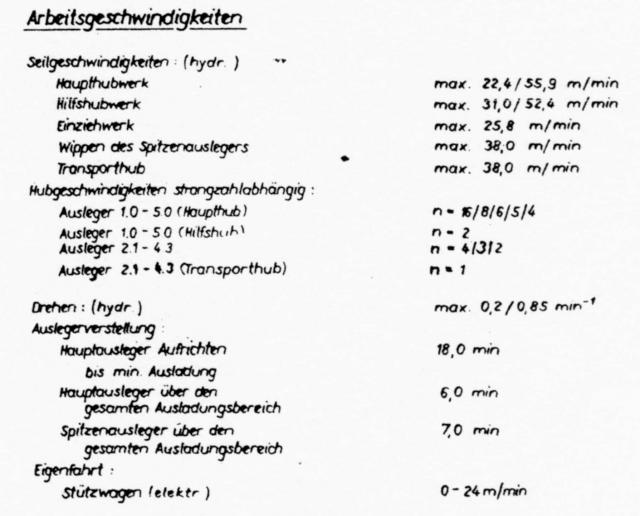 Arbeitsgeschwindigkeiten
Seilgeschwindigkeiten : (hydr.)
Haupthubwerk max. 22,4/55,9 m/min
Hilfshubwerk max. 31,0/52,4 m/min
Einziehwerk max. 25,8 m/min
Wippen des Spitzenauslegers max. 38,0 m/min
Transporthub max. 38,0 m/min
Hubgeschwindigkeiten strangzahlabhängig :
Ausleger 1.0 - 5.0 (Haupthub) n = 16/8/6/5/4
Ausleger 1.0 - 5.0 (Hilfshub) n = 2
Ausleger 2.1 - 4.3 n = 4/3/2
Ausleger 2.1 - 4.3 (Transporthub) n = 1
Drehen : (hydr.) max. 0,2/0,85 min⁻¹
Auslegerverstellung :
Hauptausleger Aufrichten 18,0 min
bis min. Ausladung
Hauptausleger über den 6,0 min
gesamten Ausladungsbereich
Spitzenausleger über den 7,0 min
gesamten Ausladungsbereich
Eigenfahrt :
Stützwagen (elektr.) 0 - 24 m/min